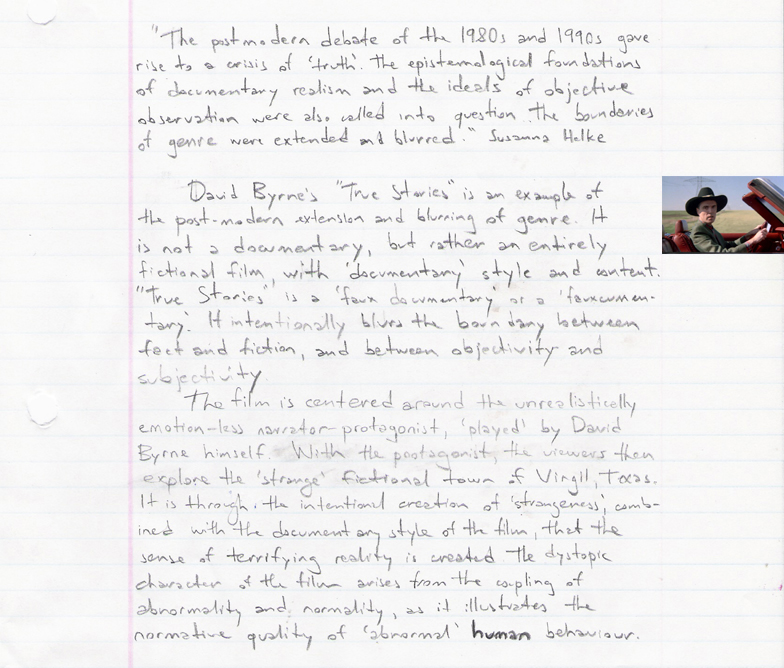 "The postmodern debate of the 1980s and 1990s gave
rise to a crisis of 'truth'. The epistemological foundations
of documentary realism and the ideals of objective
observation were also called into question. The boundaries
of genre were extended and blurred." Susanna Helke
David Byrne's "True Stories" is an example of
the post-modern extension and blurring of genre. It
is not a documentary, but rather an entirely
fictional film, with 'documentary' style and content.
"True Stories" is a 'faux documentary' or a 'fauxcumen-
tary'. It intentionally blurs the boundary between
fact and fiction, and between objectivity and
subjectivity.
The film is centered around the unrealistically
emotion-less narrator-protagonist, 'played' by David
Byrne himself. With the protagonist, the viewers then
explore the 'strange' fictional town of Virgil, Texas.
It is through the intentional creation of 'strangeness', comb-
ined with the documentary style of the film, that the
sense of terrifying reality is created. The dystopic
character of the film arises from the coupling of
abnormality and normality, as it illustrates the
normative quality of 'abnormal' human behaviour.